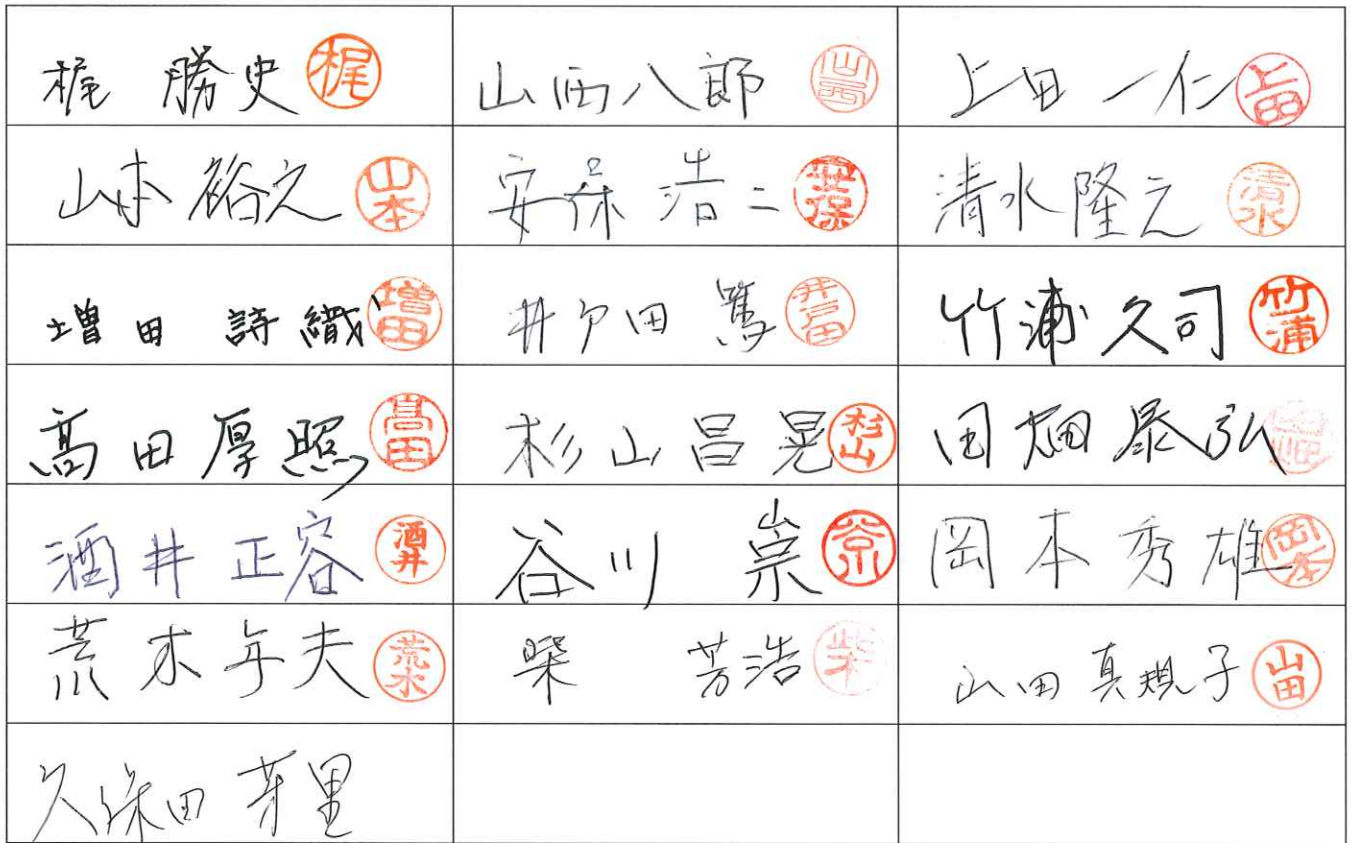 梶 勝史 梶 山西八郎 山西 上田 一仁 上田
山本 裕之 山本 安保 浩二 安保 清水隆之 清水
増田 詩織 増田 井戸田 篤 井戸田 竹浦久司 竹浦
髙田厚照 髙田 杉山昌晃 杉山 田畑泰弘
酒井正容 酒井 谷川 崇 谷川 岡本秀雄 岡本
荒木年夫 荒木 柴 芳浩 柴 山田真規子 山田
久保田 芽里